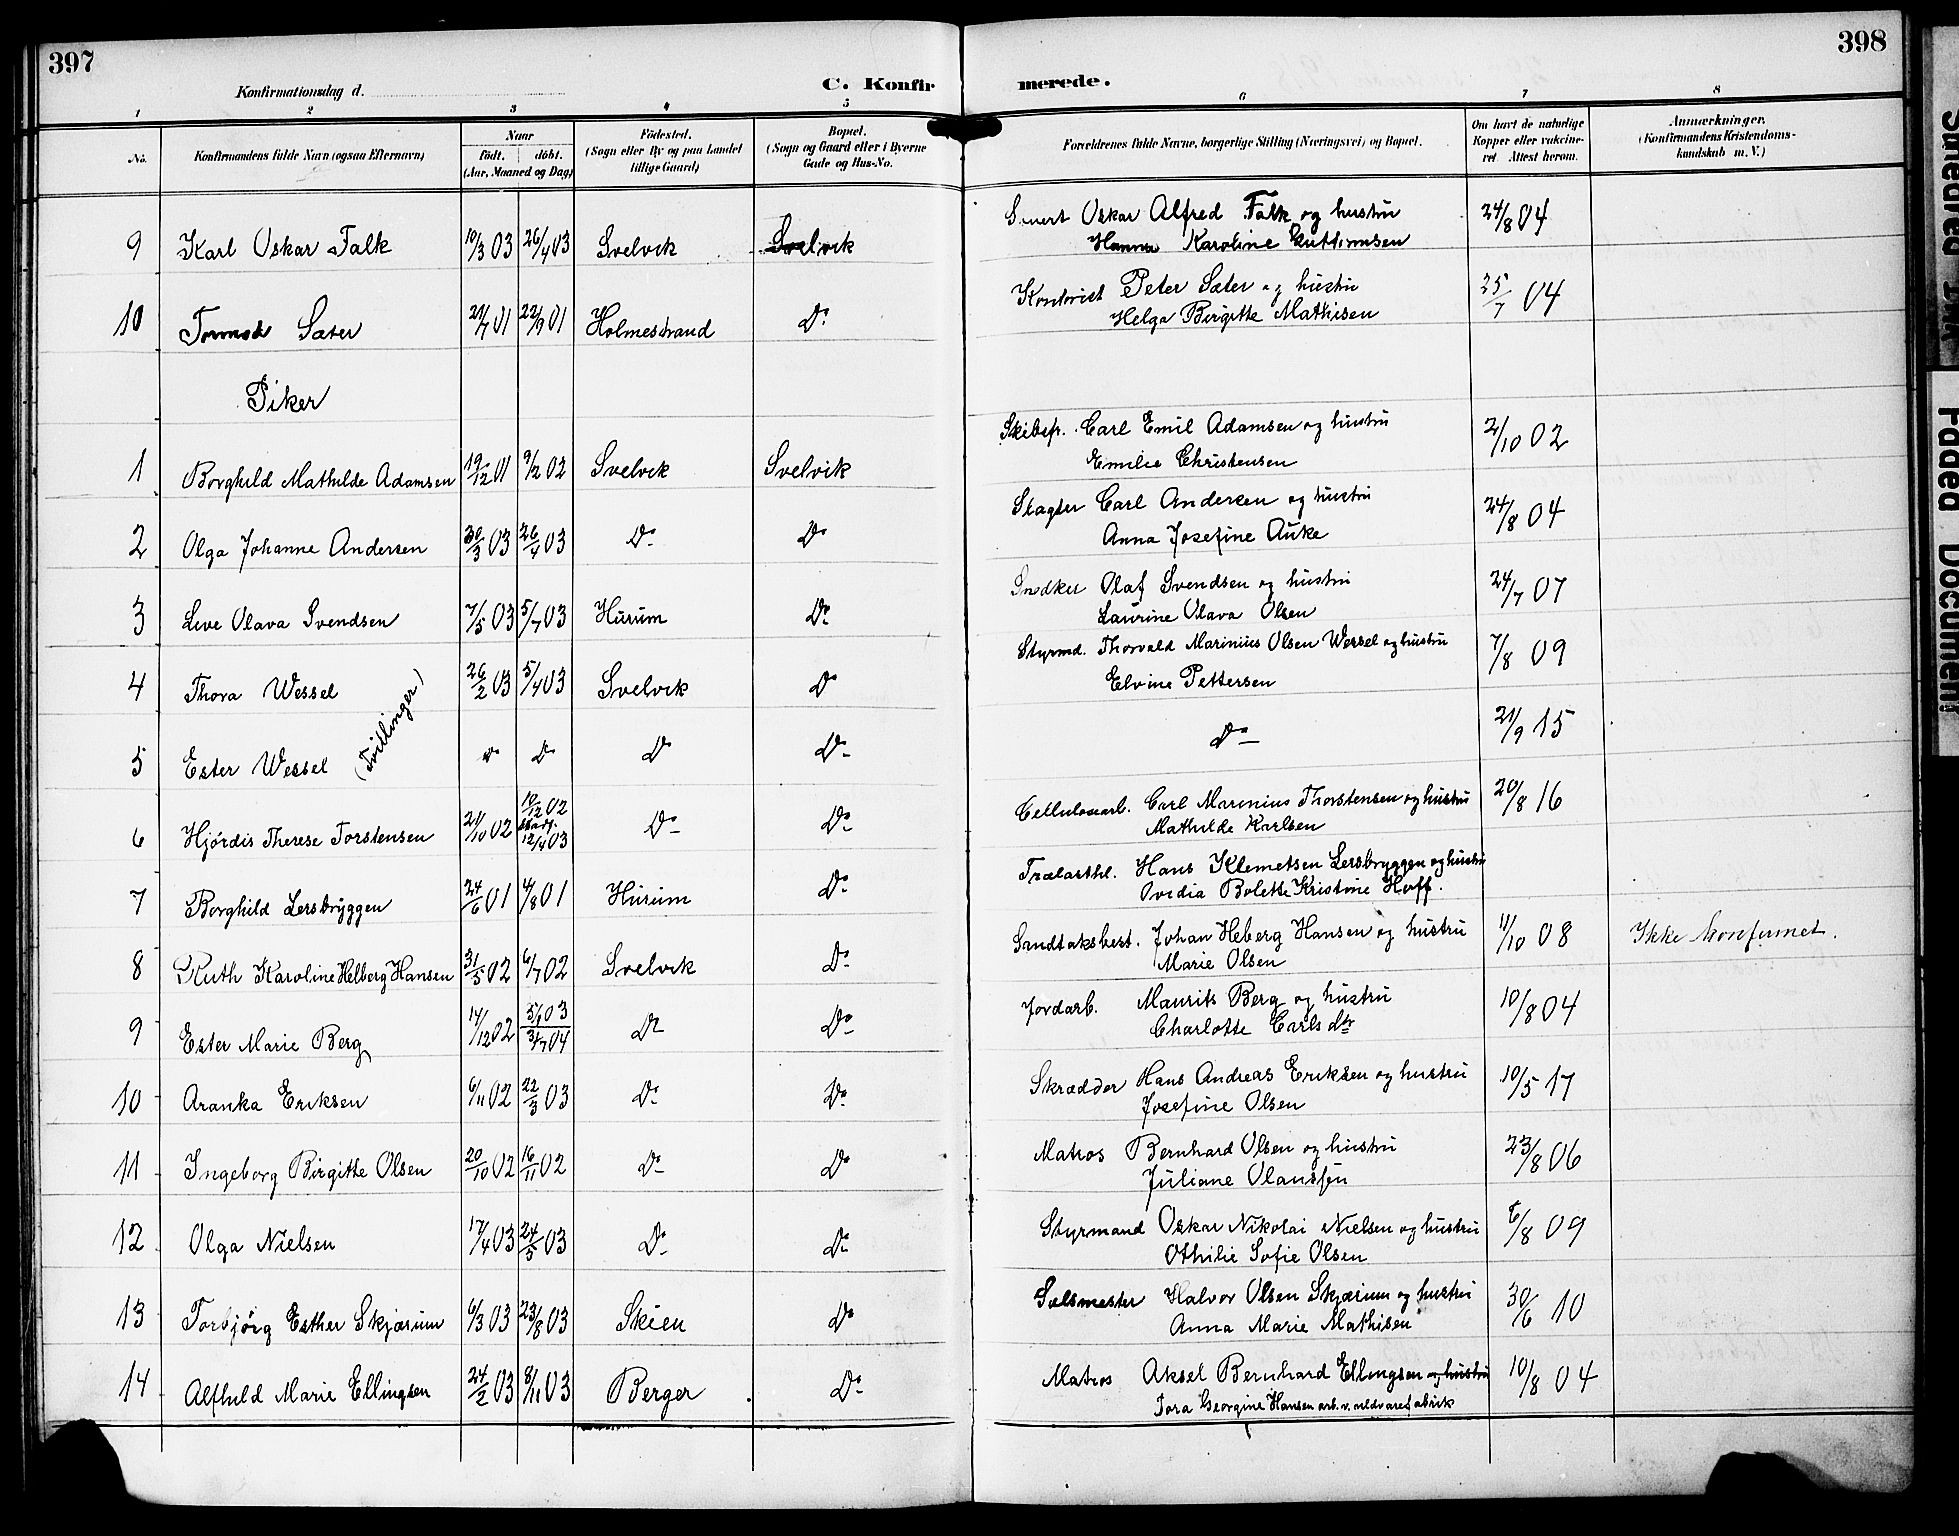 397
398
Konfirmationsdag d.
C. Konfirmerede.
1 2 3 4 5 6 7 8
No. Konfirmandens fulde Navn (ogsaa Efternavn) Naar født. døbt. (Aar, Maaned og Dag) Fødested. (Sogn eller By og paa Landet tillige Gaard) Bopæl. (Sogn og Gaard eller i Byerne Gade og Hus-No. Forældrenes fulde Navne, borgerlige Stilling (Næringsvei) og Bopæl. Om havt de naturlige Kopper eller vakcineret. Attest herom. Anmærkninger. (Konfirmandens Kristendomskundskab m. V.)
9 Karl Oskar Falk 10/3 03 26/4 03 Svelvik Svelvik Oskar Alfred Falk og hustru 24/8 04
Hanna Karoline Guttormsen
10 Tormod Sæter 01 22/9 01 Holmestrand Do Kontorist Peter Sæter og hustru 25/7 04
Helga Birgitte Mathisen
Piker
1 Borghild Mathilde Adamsen 19/12 01 9/2 02 Svelvik Svelvik Skibsfr. Carl Emil Adamsen og hustru 2/10 02
Emilie Christensen
2 Olga Johanne Andersen 30/3 03 26/4 03 Do Do Slagter Carl Andersen og hustru 24/8 04
Anna Josefine Auke
3 Live Olava Svendsen 7/5 03 5/7 03 Hurum Do Snedker Olaf Svendsen og hustru 24/7 07
Laurine Olava Olsen
4 Thora Wessel 26/2 03 5/4 03 Svelvik Do Styrmd. Thorvald Marinius Olsen Wessel og hustru 7/8 09
Elvine Pettersen
(Tvillinger)
5 Ester Wessel Do Do Do Do Do 21/9 15
6 Hjørdis Therese Torstensen 21/10 02 10/12 02 12/4 03 Do Do Cellulosearb. Carl Marinius Thorstensen og hustru 20/8 16
Mathilde Karlsen
7 Borghild Lersbryggen 24/6 01 4/8 01 Hurum Do Trælasthl. Hans Klemetsen Lersbryggen og hustru
Ovedia Bolette Kristine Hoff.
8 Ruth Karoline Helberg Hansen 31/5 02 6/7 02 Svelvik Do Sandtaksbest. Johan Heberg Hansen og hustru 11/10 08 Ikke konfirmet.
Marie Olsen
9 Ester Marie Berg 14/12 02 5/7 03 3/7 04 Do Do Jordarb. Maurits Berg og hustru 10/8 04
Charlotte Carlsdtr
10 Aranka Eriksen 6/11 02 22/3 03 Do Do Skrædder Hans Andreas Eriksen og hustru 10/5 17
Josefine Olsen
11 Ingeborg Birgitte Olsen 20/10 02 16/11 02 Do Do Matros Bernhard Olsen og hustru 23/8 06
Juliane Olaussen
12 Olga Nielsen 17/4 03 24/5 03 Do Do Styrmand Oskar Nikolai Nielsen og hustru 6/8 09
Othilie Sofie Olsen
13 Torbjørg Esther Skjærum 6/3 03 23/8 03 Skien Do Halvor Olsen Skjærum og hustru 30/6 10
Anna Marie Mathisen
14 Alfhild Marie Ellingsen 24/2 03 8/11 03 Berger Do Matros Aksel Bernhard Ellingsen og hustru 10/8 04
Tora Georgine Hansen arb. v. uldvarefabrik
Faded Document